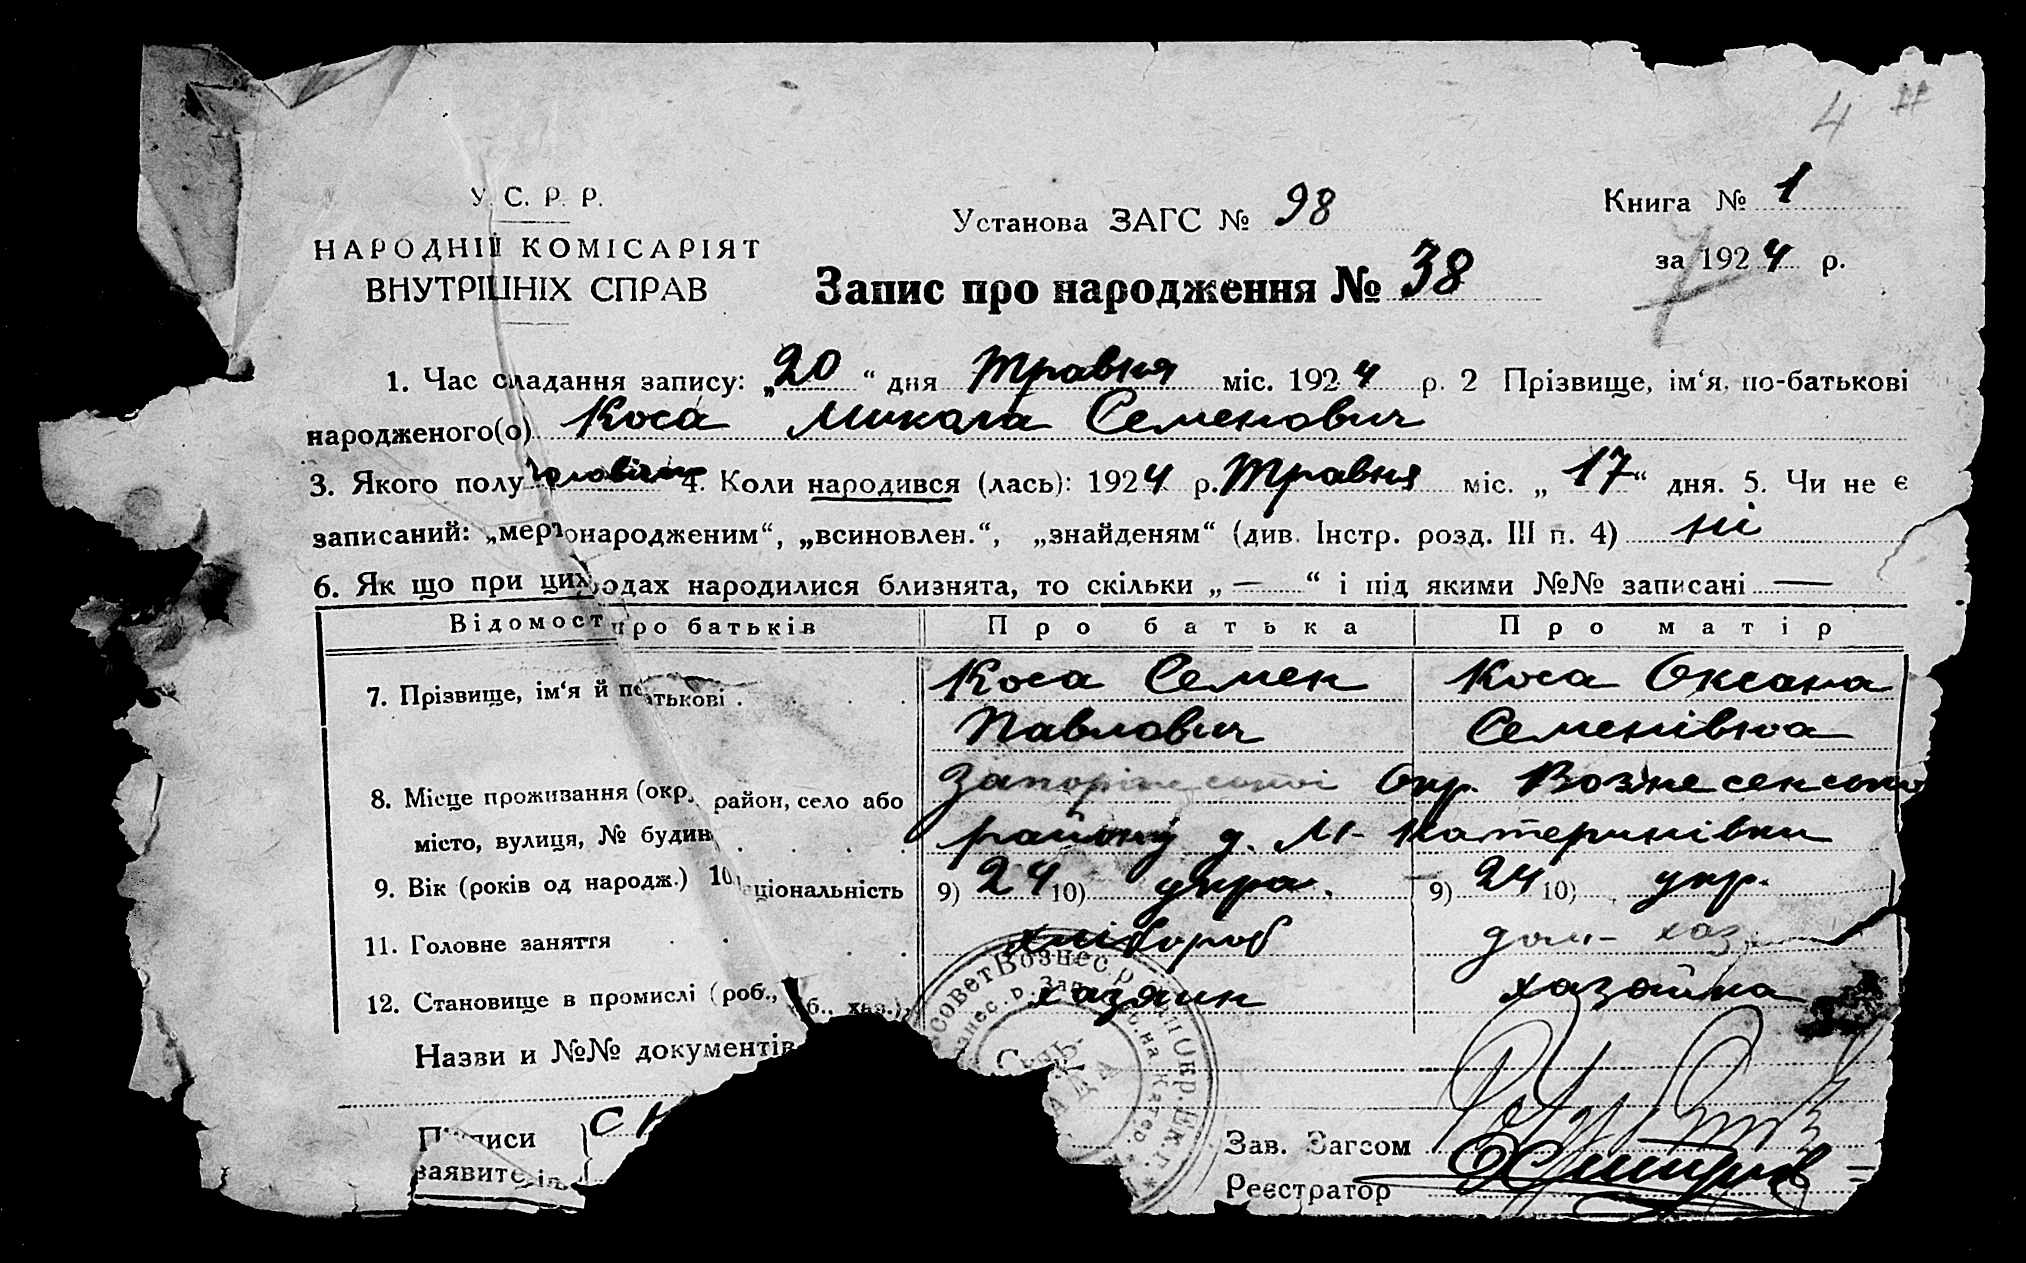 4
У. С. Р. Р.
НАРОДНІЙ КОМІСАРІЯТ
ВНУТРІШНІХ СПРАВ
Установа ЗАГС № 98
Книга № 1
за 1924 р.
Запис про народження № 38
1. Час складання запису: „20“ дня Травня міс. 1924 р. 2 Прізвище, ім‘я, по-батькові
народженого(о) Коса Микола Семенович
3. Якого полу чоловічи 4. Коли народився (лась): 1924 р. Травня міс. „17“ дня. 5. Чи не є
записаний: „мертвонародженим“, „всиновлен.“, „знайденям“ (див. Інстр. розд. III п. 4) ні
6. Як що при цих родах народилися близнята, то скільки „—“ і під якими №№ записані —
Відомості про батьків Про батька Про матір
7. Прізвище, ім‘я й по батькові Коса Семен Коса Оксана
Павлович Семенівна
8. Місце проживання (окр., район, село або Запоріжської Окр. Вознесенсько
місто, вулиця, № будин району д. М-Катеринівки
9. Вік (років од народж.) 10 національність 9) 24 10) укра. 9) 24 10) укр.
11. Головне заняття хлібороб дом- хаз
12. Становище в промислі (роб., б., хаз.) хазяин хазайка
Назви и №№ документів
Підписи
заявителів
Зав. Загсом
Реєстратор